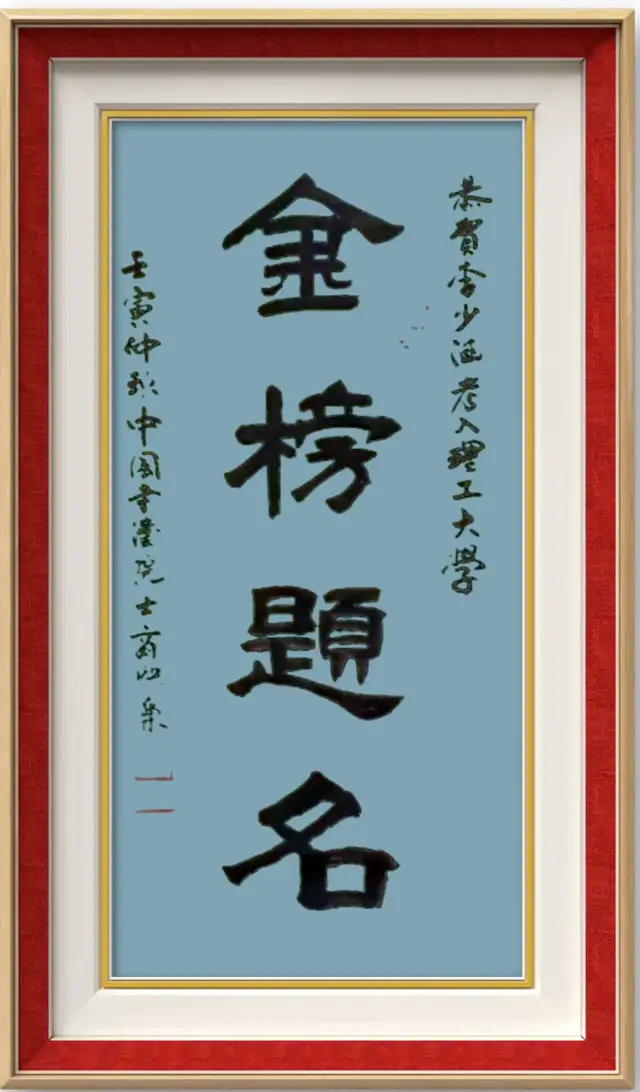 恭賀李少涵考入理工大學
金榜題名
壬寅仲秋中国書畫院士商